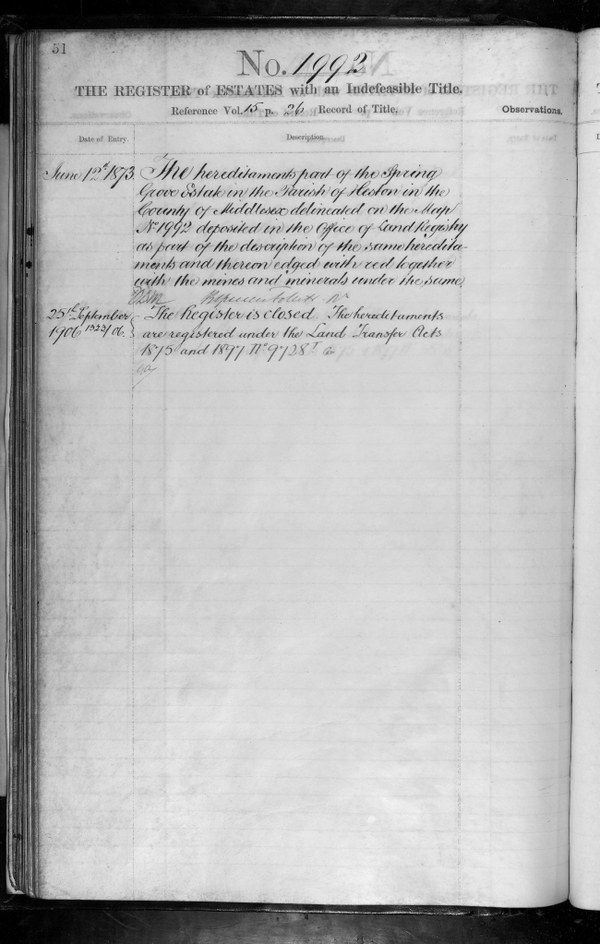 51
No. 1992
THE REGISTER of ESTATES with an Indefeasible Title.
Reference Vol. 15 p. 26 Record of Title.
Observations.
Date of Entry.
Description.
June 12th 1873. The hereditaments part of the Spring
Grove Estate in the Parish of Heston in the
County of Middlesex delineated on the Map
No 1992 deposited in the Office of Land Registry
as part of the description of the same heredita-
ments and thereon edged with red together
with the mines and minerals under the same.
25th September The Register is closed. The hereditaments
1906 1323/06. are registered under the Land Transfer Acts
1875 and 1897 No 9728